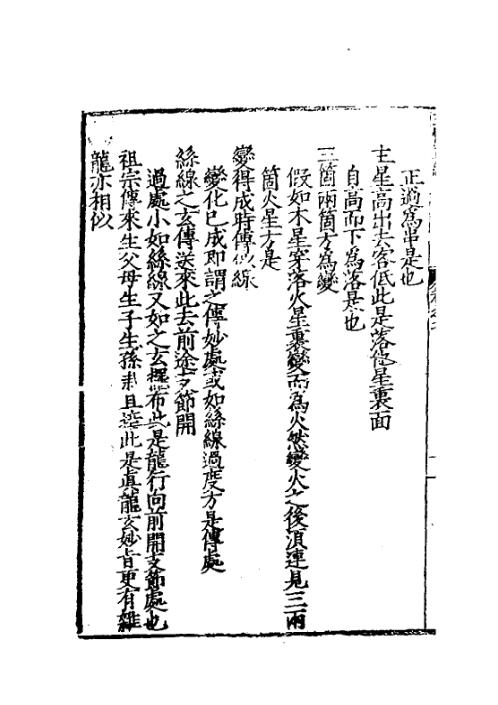 正過爲串是也
主星高出去客低此是落他星裏面
自高而下爲落是也
三箇兩箇方爲變
假如木星穿落火星裏變而爲火然變火之後湏連見三兩
箇火星方是
變得成時傳似線
變化已成即謂之傳妙處或如絲線過度方是傳處
絲線之玄傳送來此去前途支節開
過處小如絲線又如之玄擺布此是龍行向前開支節處也
祖宗傳來生父母生子生孫 且 此是眞龍玄妙旨更有雜
龍亦相似